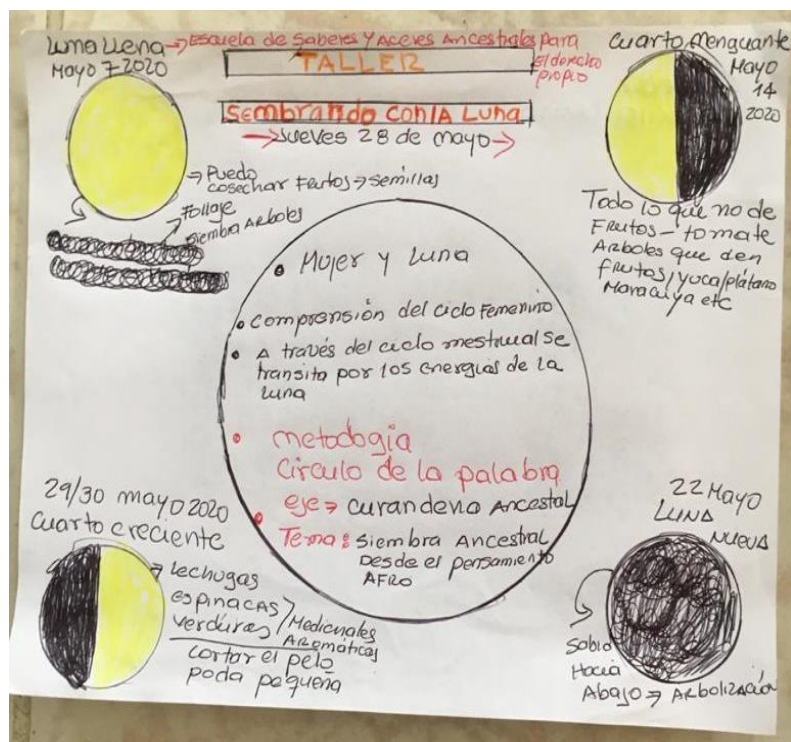 Luna Llena → Escuela de Saberes y Aceres Ancestrales para
el derecho
propio
Mayo 7 2020
TALLER
Sembrando con la Luna
→ Jueves 28 de mayo →
→ Puedo
cosechar Frutos → semillas
Follaje
siembra Arboles
Cuarto Menguante
Mayo
14
2020
Todo lo que no de
Frutos - tomate
Arboles que den
frutos/yuca/plátano
Maracuya etc
• Mujer y Luna
• comprensión del ciclo Femenino
• A través del ciclo mestrual se
transita por los energías de la
luna
• metodogia
Circulo de la palabra
eje → curandena Ancestal
• Tema: Siembra Ancestral
Desde el pensamiento
AFRO
29/30 mayo 2020
Cuarto creciente
→ Lechugas
espinacas
verduras / Medicnales
Aromáticas
cortar el pelo
poda pequeña
22 Mayo
LUNA
NUEVA
Hacia
Abajo → Arbolización